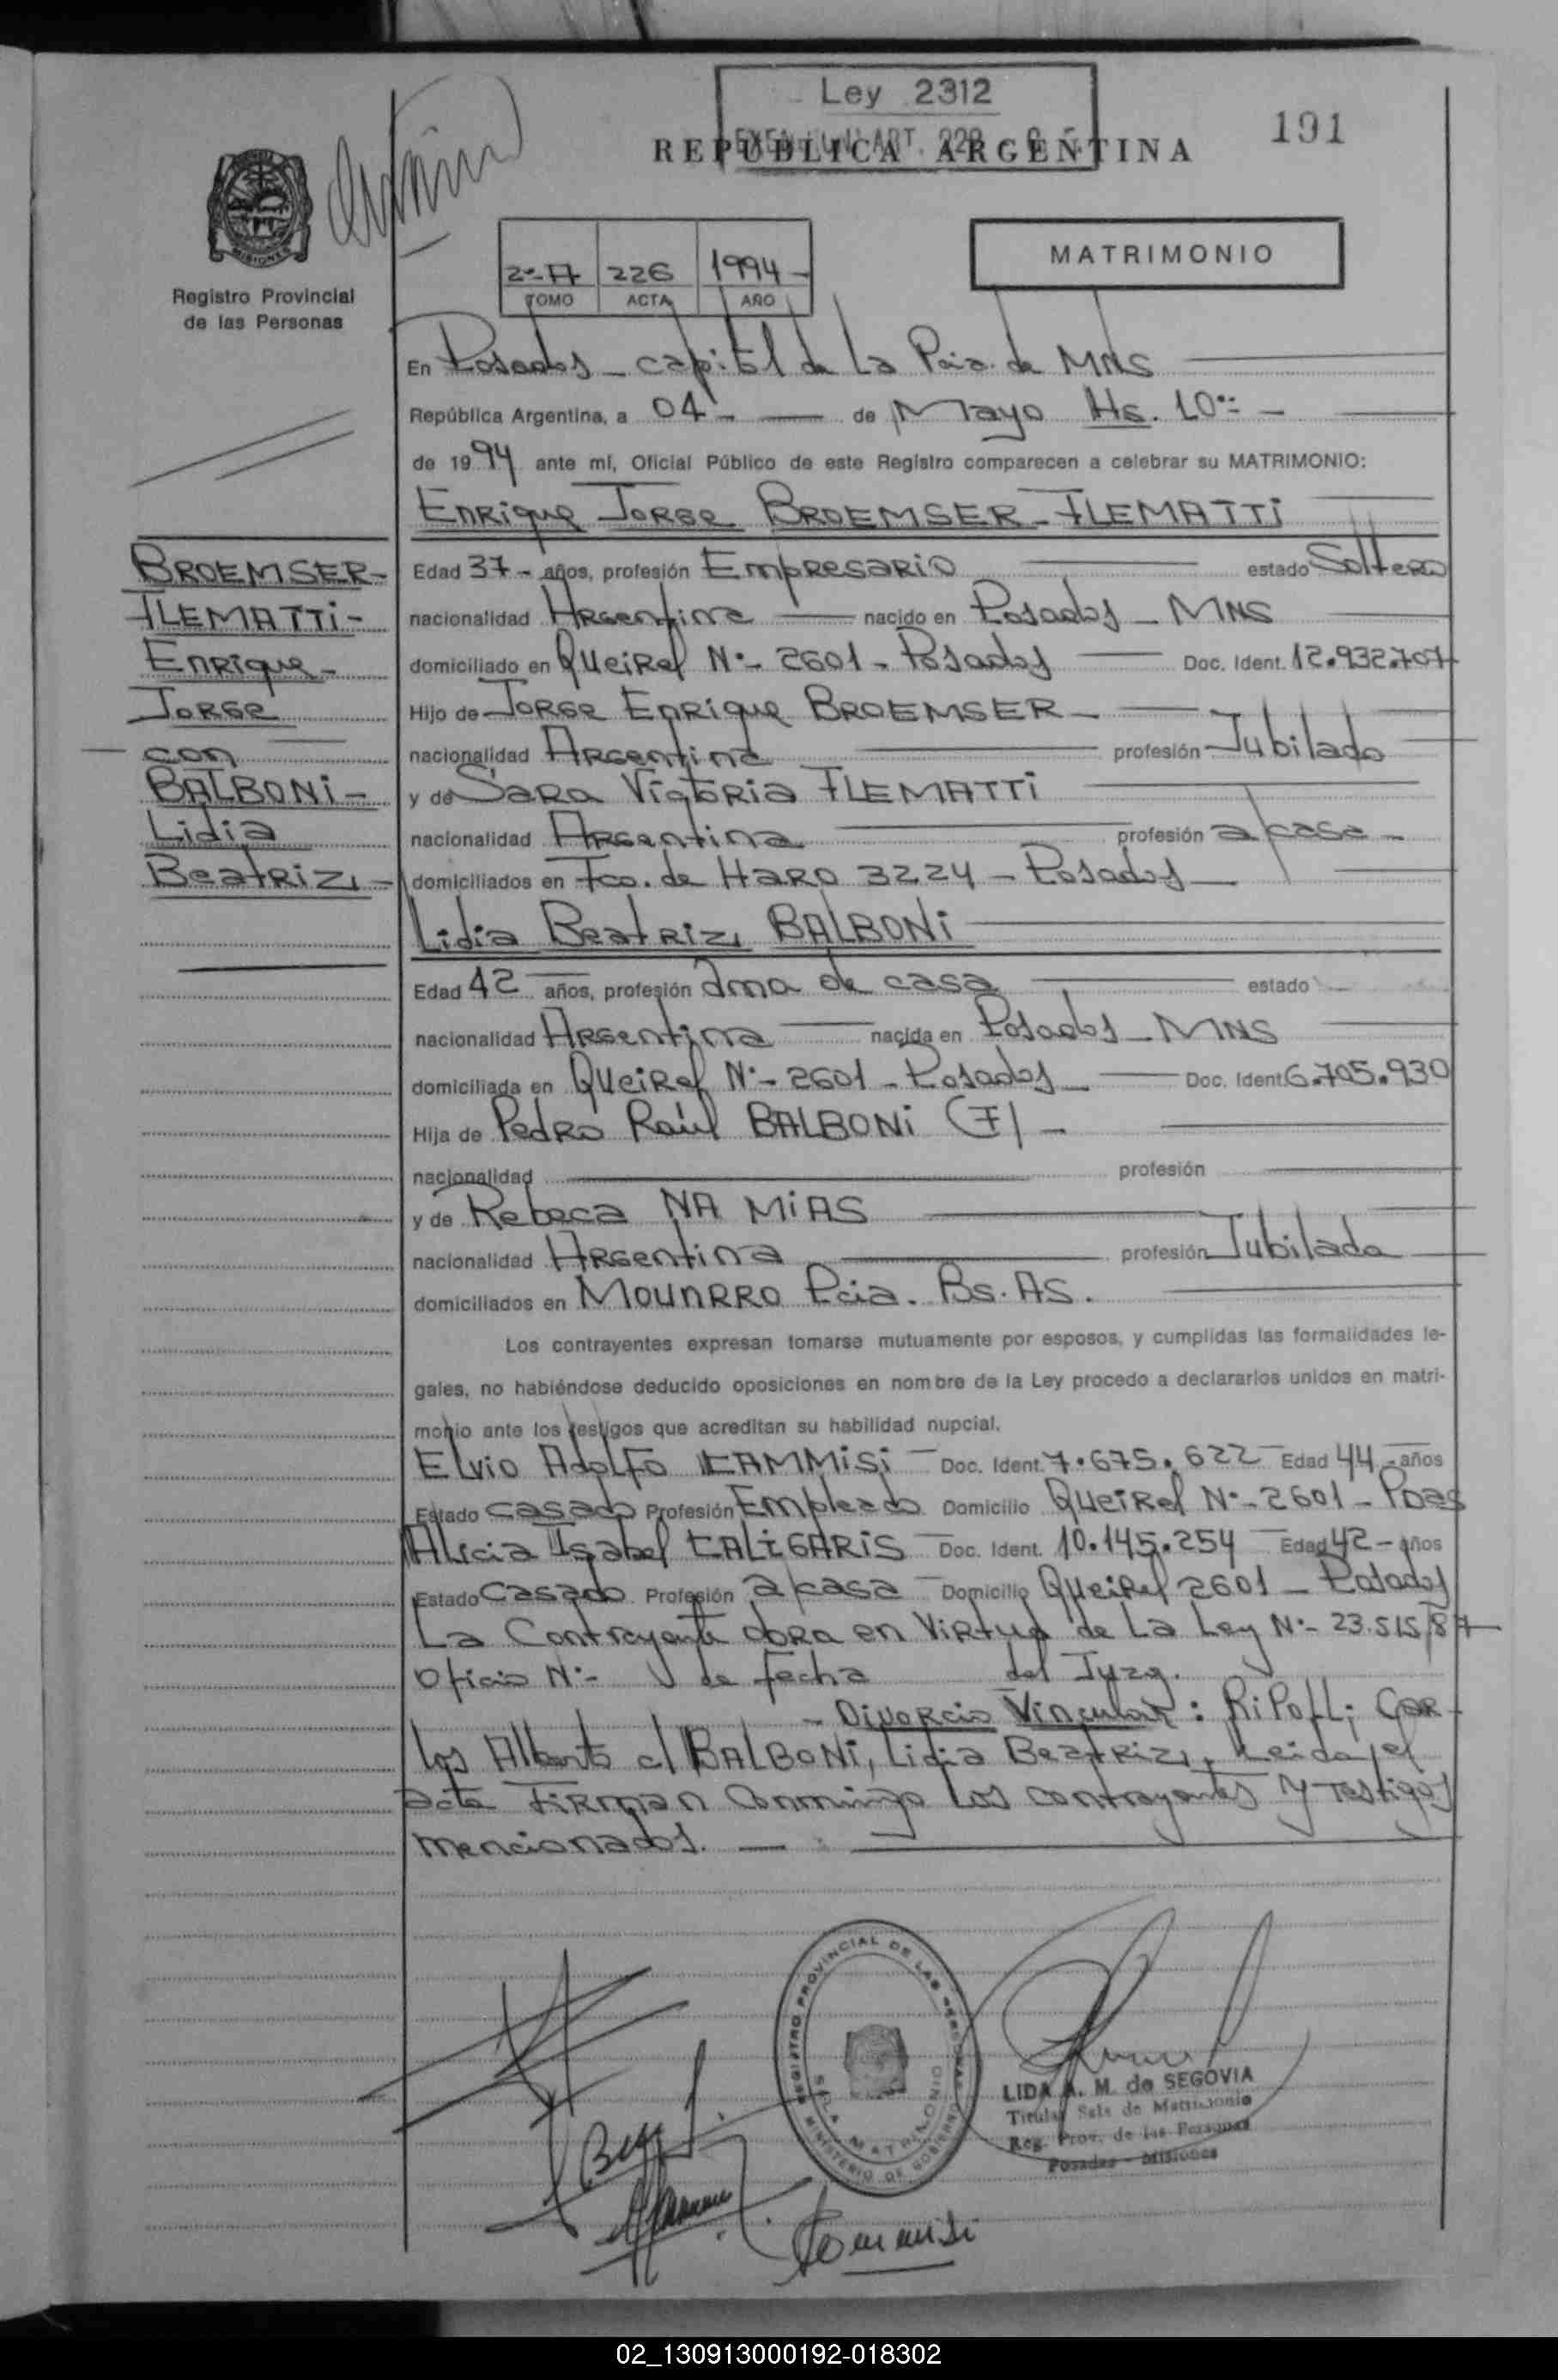 Ley 2312
REPUBLICA ARGENTINA
191
MATRIMONIO
2º-A 226 1994-
TOMO ACTA AÑO
MISIONES
Registro Provincial
de las Personas
En Posadas - capital de La Pcia. de MNS
República Argentina, a 04- de Mayo Hs. 10:-
de 1994 ante mí, Oficial Público de este Registro comparecen a celebrar su MATRIMONIO:
Enrique Jorge BROEMSER-FLEMATTi
BROEMSER-
FLEMATTi-
Enrique-
Jorge
con
BALBONi-
Lidia
Beatriz-
Edad 37- años, profesión Empresario estado Soltero
nacionalidad Argentina nacido en Posadas - MNS
domiciliado en Queirel Nº- 2601 - Posadas Doc. Ident. 12.932.707
Hijo de Jorge Enrique BROEMSER-
nacionalidad Argentina profesión Jubilado
y de Sara Victoria FLEMATTi
nacionalidad Argentina profesión a/casa-
domiciliados en Fco. de Haro 3224 - Posadas
Lidia Beatriz BALBONi
Edad 42 años, profesión ama de casa estado
nacionalidad Argentina nacida en Posadas - MNS
domiciliada en Queirel Nº- 2601 - Posadas Doc. Ident. 6.705.930
Hija de Pedro Raúl BALBONi (F) -
nacionalidad profesión
y de Rebeca NA MiAS
nacionalidad Argentina profesión Jubilada
domiciliados en Mounrro Pcia. Bs. AS.
Los contrayentes expresan tomarse mutuamente por esposos, y cumplidas las formalidades le-
gales, no habiéndose deducido oposiciones en nombre de la Ley procedo a declararlos unidos en matri-
monio ante los testigos que acreditan su habilidad nupcial.
Elvio Adolfo CAMMiSi Doc. Ident. 7.675.622 Edad 44- años
Estado casado Profesión Empleado Domicilio Queirel Nº- 2601 - Pdas
Alicia Isabel CALiGARiS Doc. Ident. 10.145.254 Edad 42- años
Estado Casado Profesión a/casa Domicilio Queirel 2601 - Posadas
La Contrayente obra en Virtud de La Ley Nº- 23.515/87
Oficio Nº- de fecha del Juzg.
- Divorcio Vincular: RiPoLL; Car-
los Alberto c/ BALBONi, Lidia Beatriz, Leida el
acta Firman Conmigo los contrayentes y testigos
mencionados.
REGISTRO PROVINCIAL DE LAS PERSONAS
SALA MATRIMONIO
MINISTERIO DE GOBIERNO
LIDA A. M. de SEGOVIA
Titular Sala de Matrimonio
Reg. Prov. de las Personas
Posadas - Misiones
02_130913000192-018302